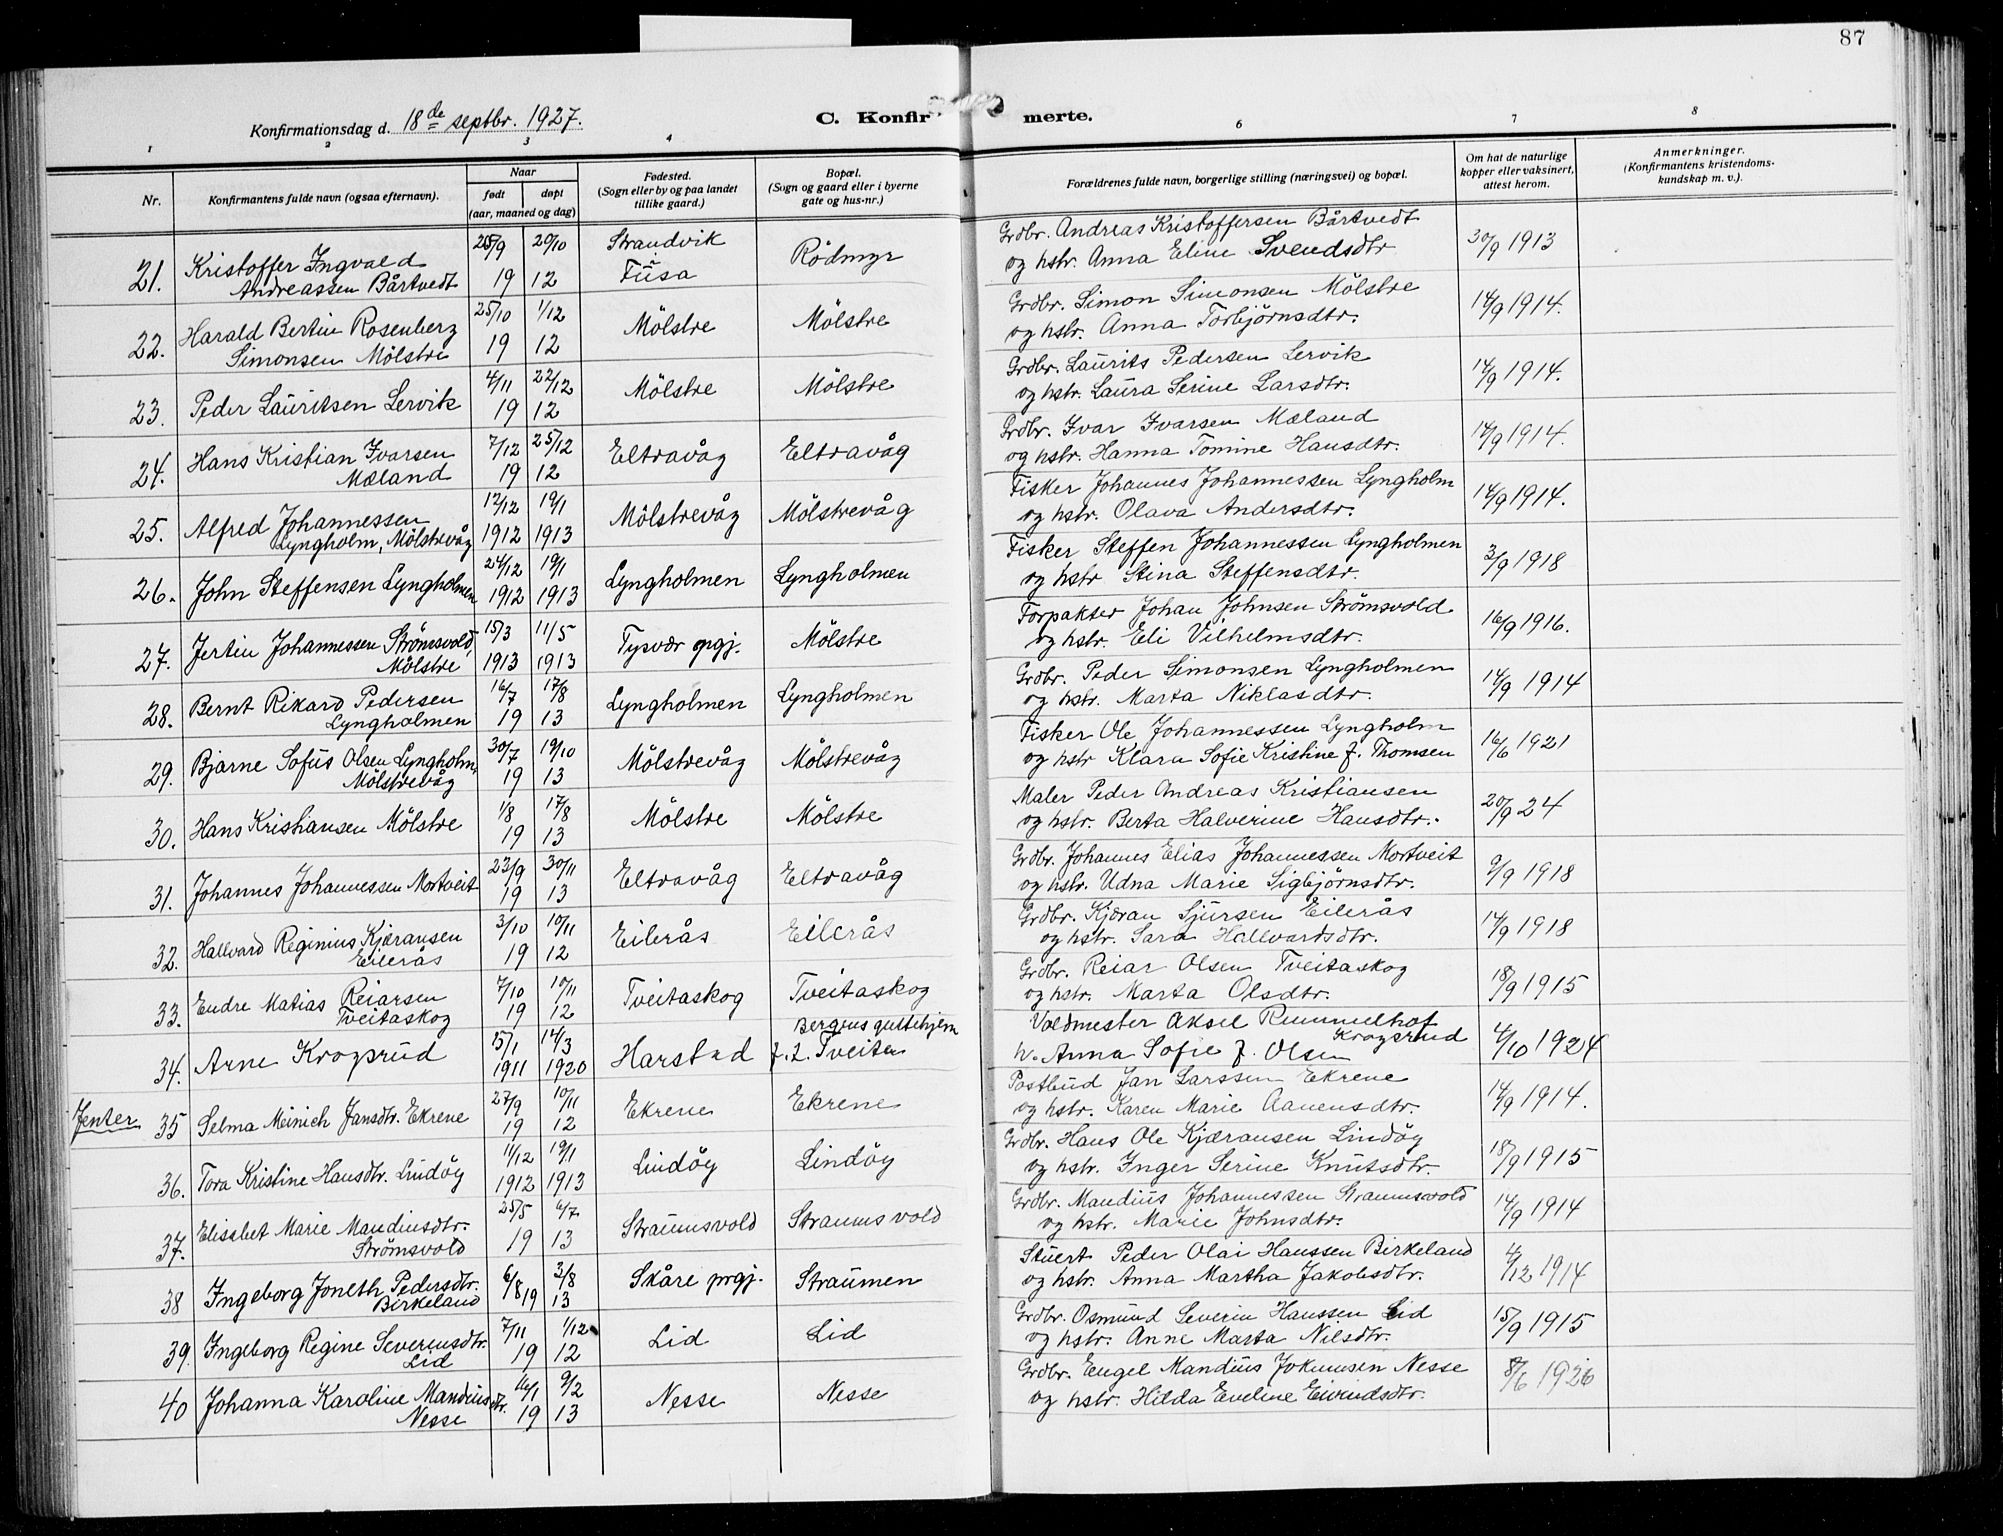 87
Konfirmationsdag d. 18de septbr. 1927.
C. Konfir merte.
1 2 3 4 6 7 8
Nr.
Konfirmantens fulde navn (ogsaa efternavn).
Naar
født døpt
(aar, maaned og dag)
Fødested.
(Sogn eller by og paa landet
tillike gaard.)
Bopæl.
(Sogn og gaard eller i byerne
gate og hus-nr.)
Forældrenes fulde navn, borgerlige stilling (næringsvei) og bopæl.
Om hat de naturlige
kopper eller vaksinert,
attest herom.
Anmerkninger.
(Konfirmantens kristendoms-
kundskap m. v.).
21. Kristoffer Ingvald 25/9 20/10 Strandvik Rödmyr Grdbr. Andreas Kristoffersen Bårtvedt 30/9 1913
Andreassen Bårtvedt 19 12 Fusa og hstr. Anna Eline Svendsdtr
22. Harald Bertin Rosenberg 25/10 1/12 Mölstre Mölstre Grdbr. Simon Simonsen Mölstre 14/9 1914.
Simonsen Mölstre 19 12 og hstr. Anna Torbjørnsdtr.
23. Peder Lauritsen Lervik 4/11 22/12 Mölstre Mölstre Grdbr. Laurits Pedersen Lervik 14/9 1914.
19 12 og hstr. Laura Serine Larsdtr.
24. Hans Kristian Ivarsen 7/12 25/12 Eltravåg Eltravåg Grdbr. Ivar Ivarsen Mæland 14/9 1914.
Mæland 19 12 og hstr. Hanna Tomine Hansdtr.
25. Alfred Johannessen 12/12 19/1 Mölstrevåg Mölstrevåg Fisker Johannes Johannessen Lyngholm 14/9 1914.
Lyngholm, Mölstrevåg 1912 1913 og hstr. Olava Andersdtr.
26. John Steffensen Lyngholmen 24/12 19/1 Lyngholmen Lyngholmen Fisker Steffen Johannessen Lyngholmen 3/9 1918
1912 1913 og hstr Stina Steffensdtr.
27. Jertin Johannessen Strömsvold, 15/3 11/5 Tysvær prgj. Mölstre Forpakter Johan Johnsen Strømsvold 16/9 1916.
Mölstre 1913 1913 og hstr. Eli Vilhelmsdtr.
28. Bernt Rikard Pedersen 16/7 17/8 Lyngholmen Lyngholmen Grdbr. Peder Simonsen Lyngholmen 14/9 1914
Lyngholmen 19 13 og hstr. Marta Niklasdtr.
29. Bjarne Sofus Olsen Lyngholm, 30/7 19/10 Mölstrevåg Mölstrevåg Fisker Ole Johannessen Lyngholm 16/6 1921
Mölstrevåg 19 13 og hstr Klara Sofie Kristine f. Thomsen
30. Hans Kristiansen Mölstre 1/8 17/8 Mölstre Mölstre Maler Peder Andreas Kristiansen 20/9 24
19 13 og hstr. Berta Halverine Hansdtr.
31. Johannes Johannessen Mortveit 23/9 30/11 Eltravåg Eltravåg Grdbr. Johannes Elias Johannessen Mortveit 9/9 1918
19 13 og hstr. Udna Marie Sigbjørnsdtr.
32. Hallvard Reginius Kjæransen 3/10 10/11 Eilerås Eilerås Grdbr. Kjæran Sjursen Eilerås 14/9 1918
Eilerås 19 12 og hstr. Sara Hallvardsdtr.
33. Endre Matias Reiarsen 7/10 10/11 Tveitaskog Tveitaskog Grdbr. Reiar Olsen Tveitaskog 18/9 1915
Tveitaskog 19 12 og hstr. Marta Olsdtr.
34. Arne Krogsrud 15/1 14/3 Harstad Bergens guttehjem Voldmester Aksel Rummelhof Krogsrud 4/10 1924
1911 1920 f. t. Tveiten h. Anna Sofie f. Olsen
Jenter 35 Selma Meinich Jansdtr. Ekrene 27/9 10/11 Ekrene Ekrene Postbud Jan Larssen Ekrene 14/9 1914.
19 12 og hstr. Karen Marie Aanensdtr.
36. Tora Kristine Hansdtr. Lindöy 11/12 19/1 Lindöy Lindöy Grdbr. Hans Ole Kjæransen Lindöy 18/9 1915
1912 1913 og hstr. Inger Serine Knutsdtr.
37. Elisabet Marie Mandiusdtr. 25/5 6/7 Straumsvold Straumsvold Grdbr. Mandius Johannessen Straumsvold 14/9 1914
Strømsvold 19 13 og hstr. Marie Johnsdtr.
38 Ingeborg Joneth Pedersdtr. 6/8 3/8 Skåre prgj. Straumen Stuert Peder Olai Hanssen Birkeland 4/12 1914
Birkeland 19 13 og hstr. Anna Martha Jakobsdtr.
39. Ingeborg Regine Severinsdtr. 7/11 1/12 Lid Lid Grdbr. Osmund Severin Hanssen Lid 15/9 1915
Lid 19 12 og hstr. Anne Marta Nilsdtr.
40 Johanna Karoline Mandiusdtr. 16/1 9/2 Nesse Nesse Grdbr. Engel Mandius Jokumsen Nesse 8/6 1926
Nesse 19 13 og hstr. Hilda Eveline Eivindsdtr.